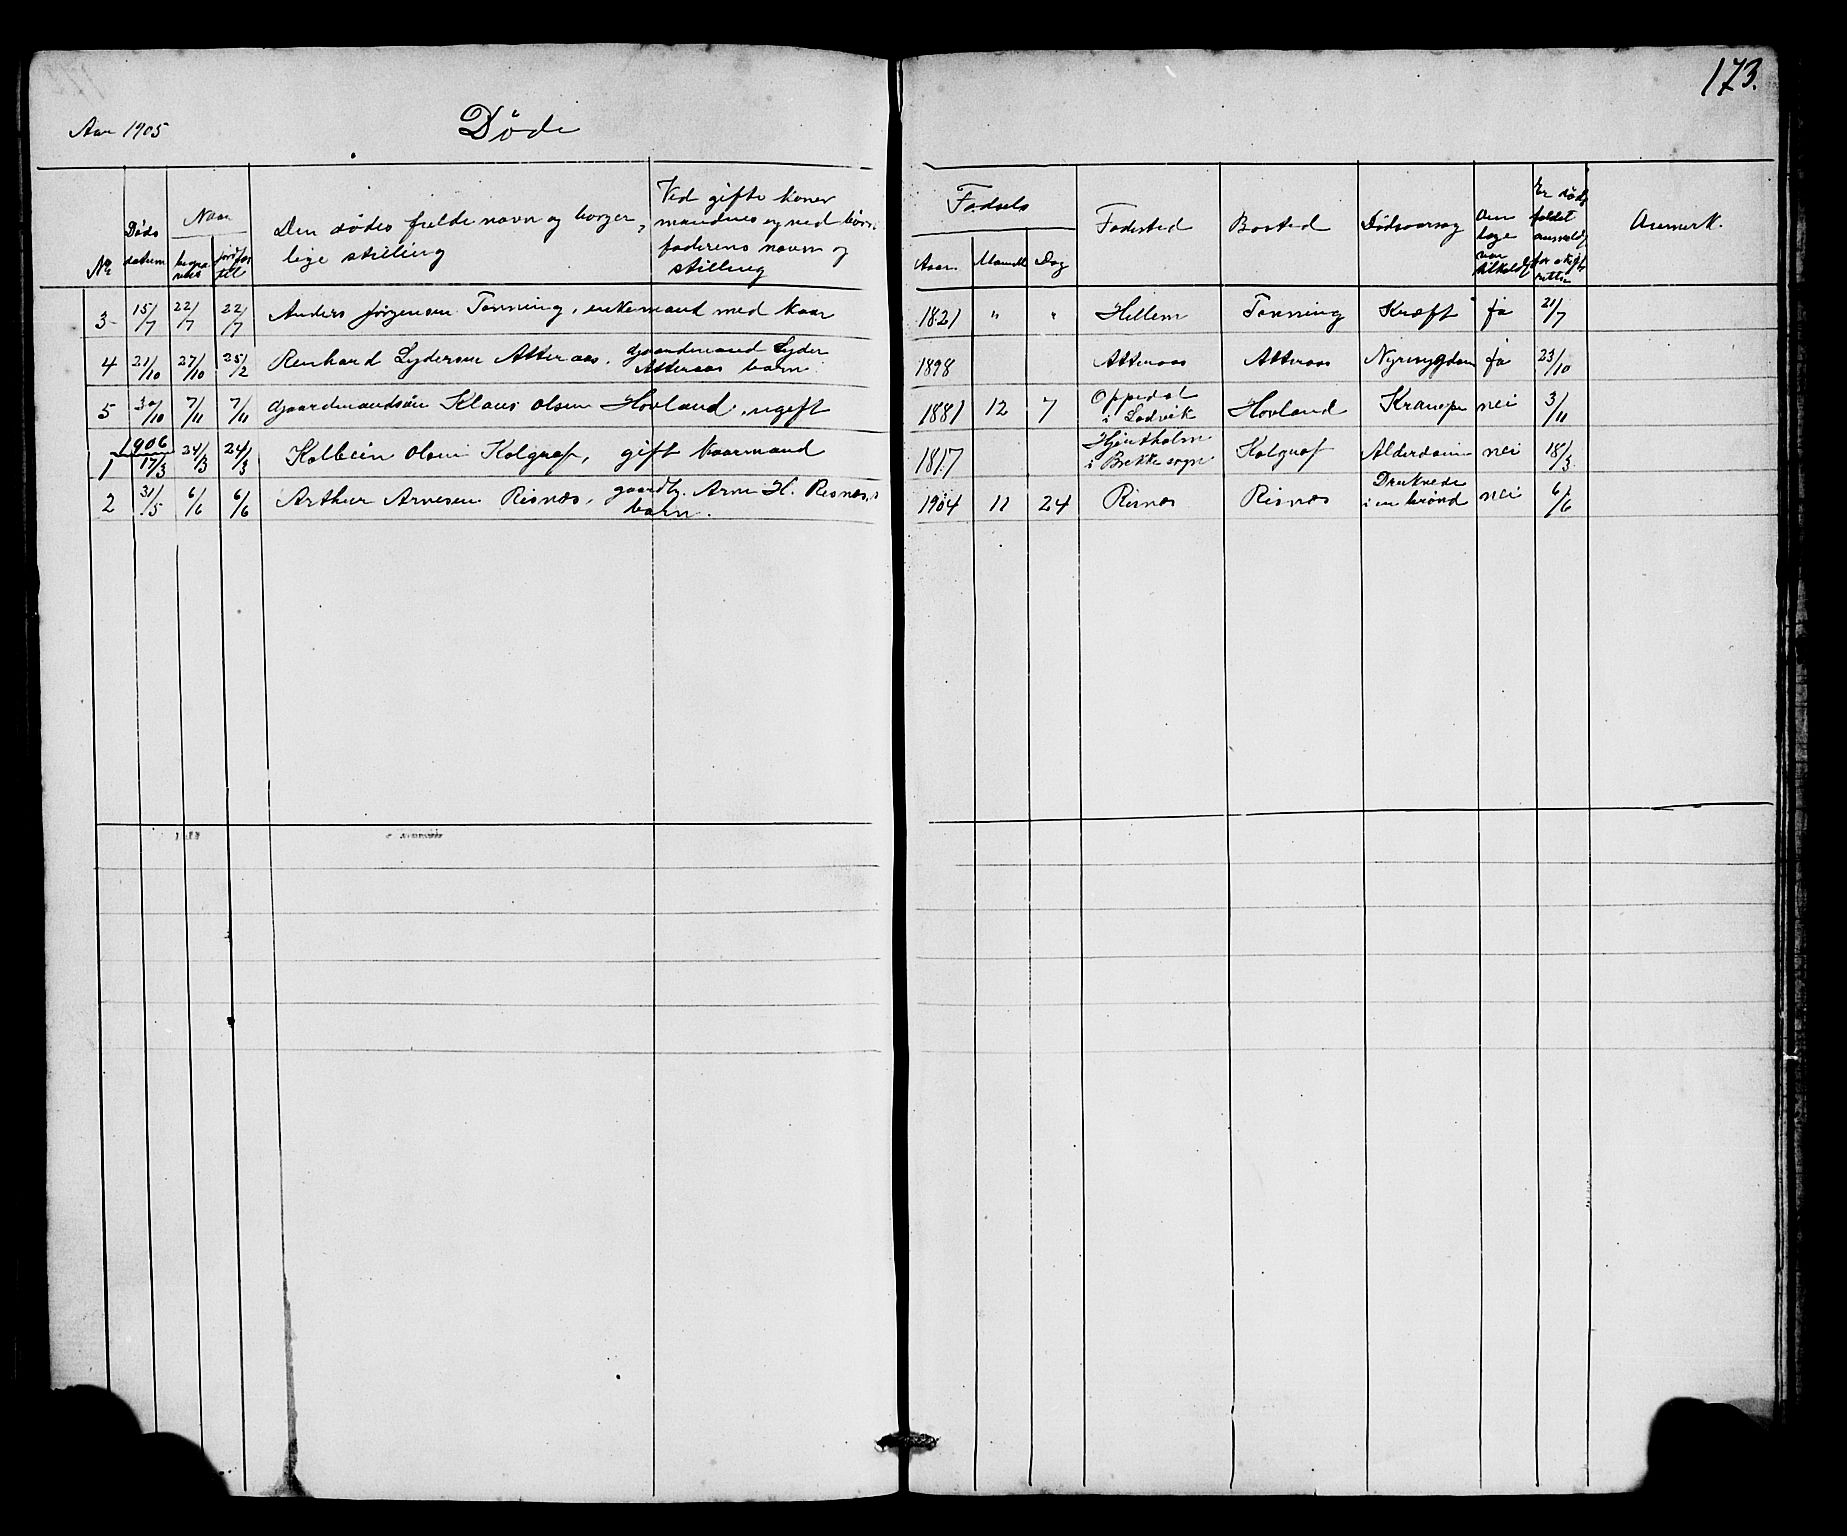 173.
Aar 1905 Døde
No
Døds datum
Naar
begravet
jordfæstet
Den dødes fulde navn og borgerlige stilling
Ved gifte koner mandens og ved børn faderens navn og stilling
Fødsels
Aar Maaned Dag
Fødested
Bosted
Dødsaarsag
Om læge var tilkaldt
Er dødsfaldet anmeldt for skifteretten
Anmerk.
3 15/7 22/7 22/7 Anders Jørgensen Tonning, enkemand med kaar 1821 " " Hillem Tonning Kræft ja 21/7
4 21/10 27/10 25/2 Renhard Lydersen Atteraas. Gaardmand Lyder Atteraas barn 1898 Atteraas Atteraas Nyresygdom ja 23/10
5 30/10 7/11 7/11 Gaardmandsøn Klaus Olsen Hovland, ugift 1881 12 7 Oppedal i Ladvik Hovland Krampe nei 3/11
1906
1 17/3 24/3 24/3 Kolbein Olsen Kolgrof, gift kaarmand 1817 i Brekke sogn Kolgrof Alderdom nei 18/3
2 31/5 6/6 6/6 Arthur Arnesen Risnæs, gaardb. Arne H. Risnæs,s barn. 1904 11 24 Risnæs Risnæs Druknede i en brønd nei 6/6